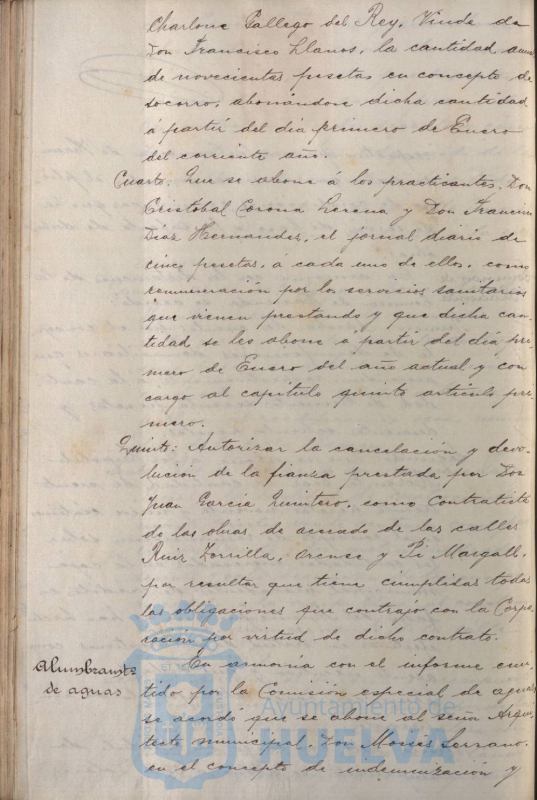 Charlone Gallego del Rey, Viuda de
Don Francisco Llanos, la cantidad anual
de novecientas pesetas en concepto de
socorro, abonándose dicha cantidad
á partir del dia primero de Enero
del corriente año.
Cuarto: Que se abone á los practicantes, Don
Cristobal Corona Lerena y Don Francisco
Diaz Hernandez, el jornal diario de
cinco pesetas, á cada uno de ellos, como
remuneración por los servicios sanitarios
que vienen prestando y que dicha can-
tidad se les abone á partir del dia pri-
mero de Enero del año actual y con
cargo al capitulo quinto articulo pri-
mero.
Quinto: Autorizar la cancelación y devo-
lución de la fianza prestada por Don
Juan Garcia Quintero, como Contratista
de las obras de acerado de las calles
Ruiz Zorrilla, Orense y Pi Margall,
por resultar que tiene cumplidas todas
las obligaciones que contrajo con la Corpo-
ración por virtud de dicho contrato.
Alumbramto
de aguas
En armonia con el informe emi-
tido por la Comisión especial de aguas
se acordó que se abone al señor Arqui-
tecto municipal, Don Moisés Serrano,
en el concepto de indemnización y
Ayuntamiento de
HUELVA